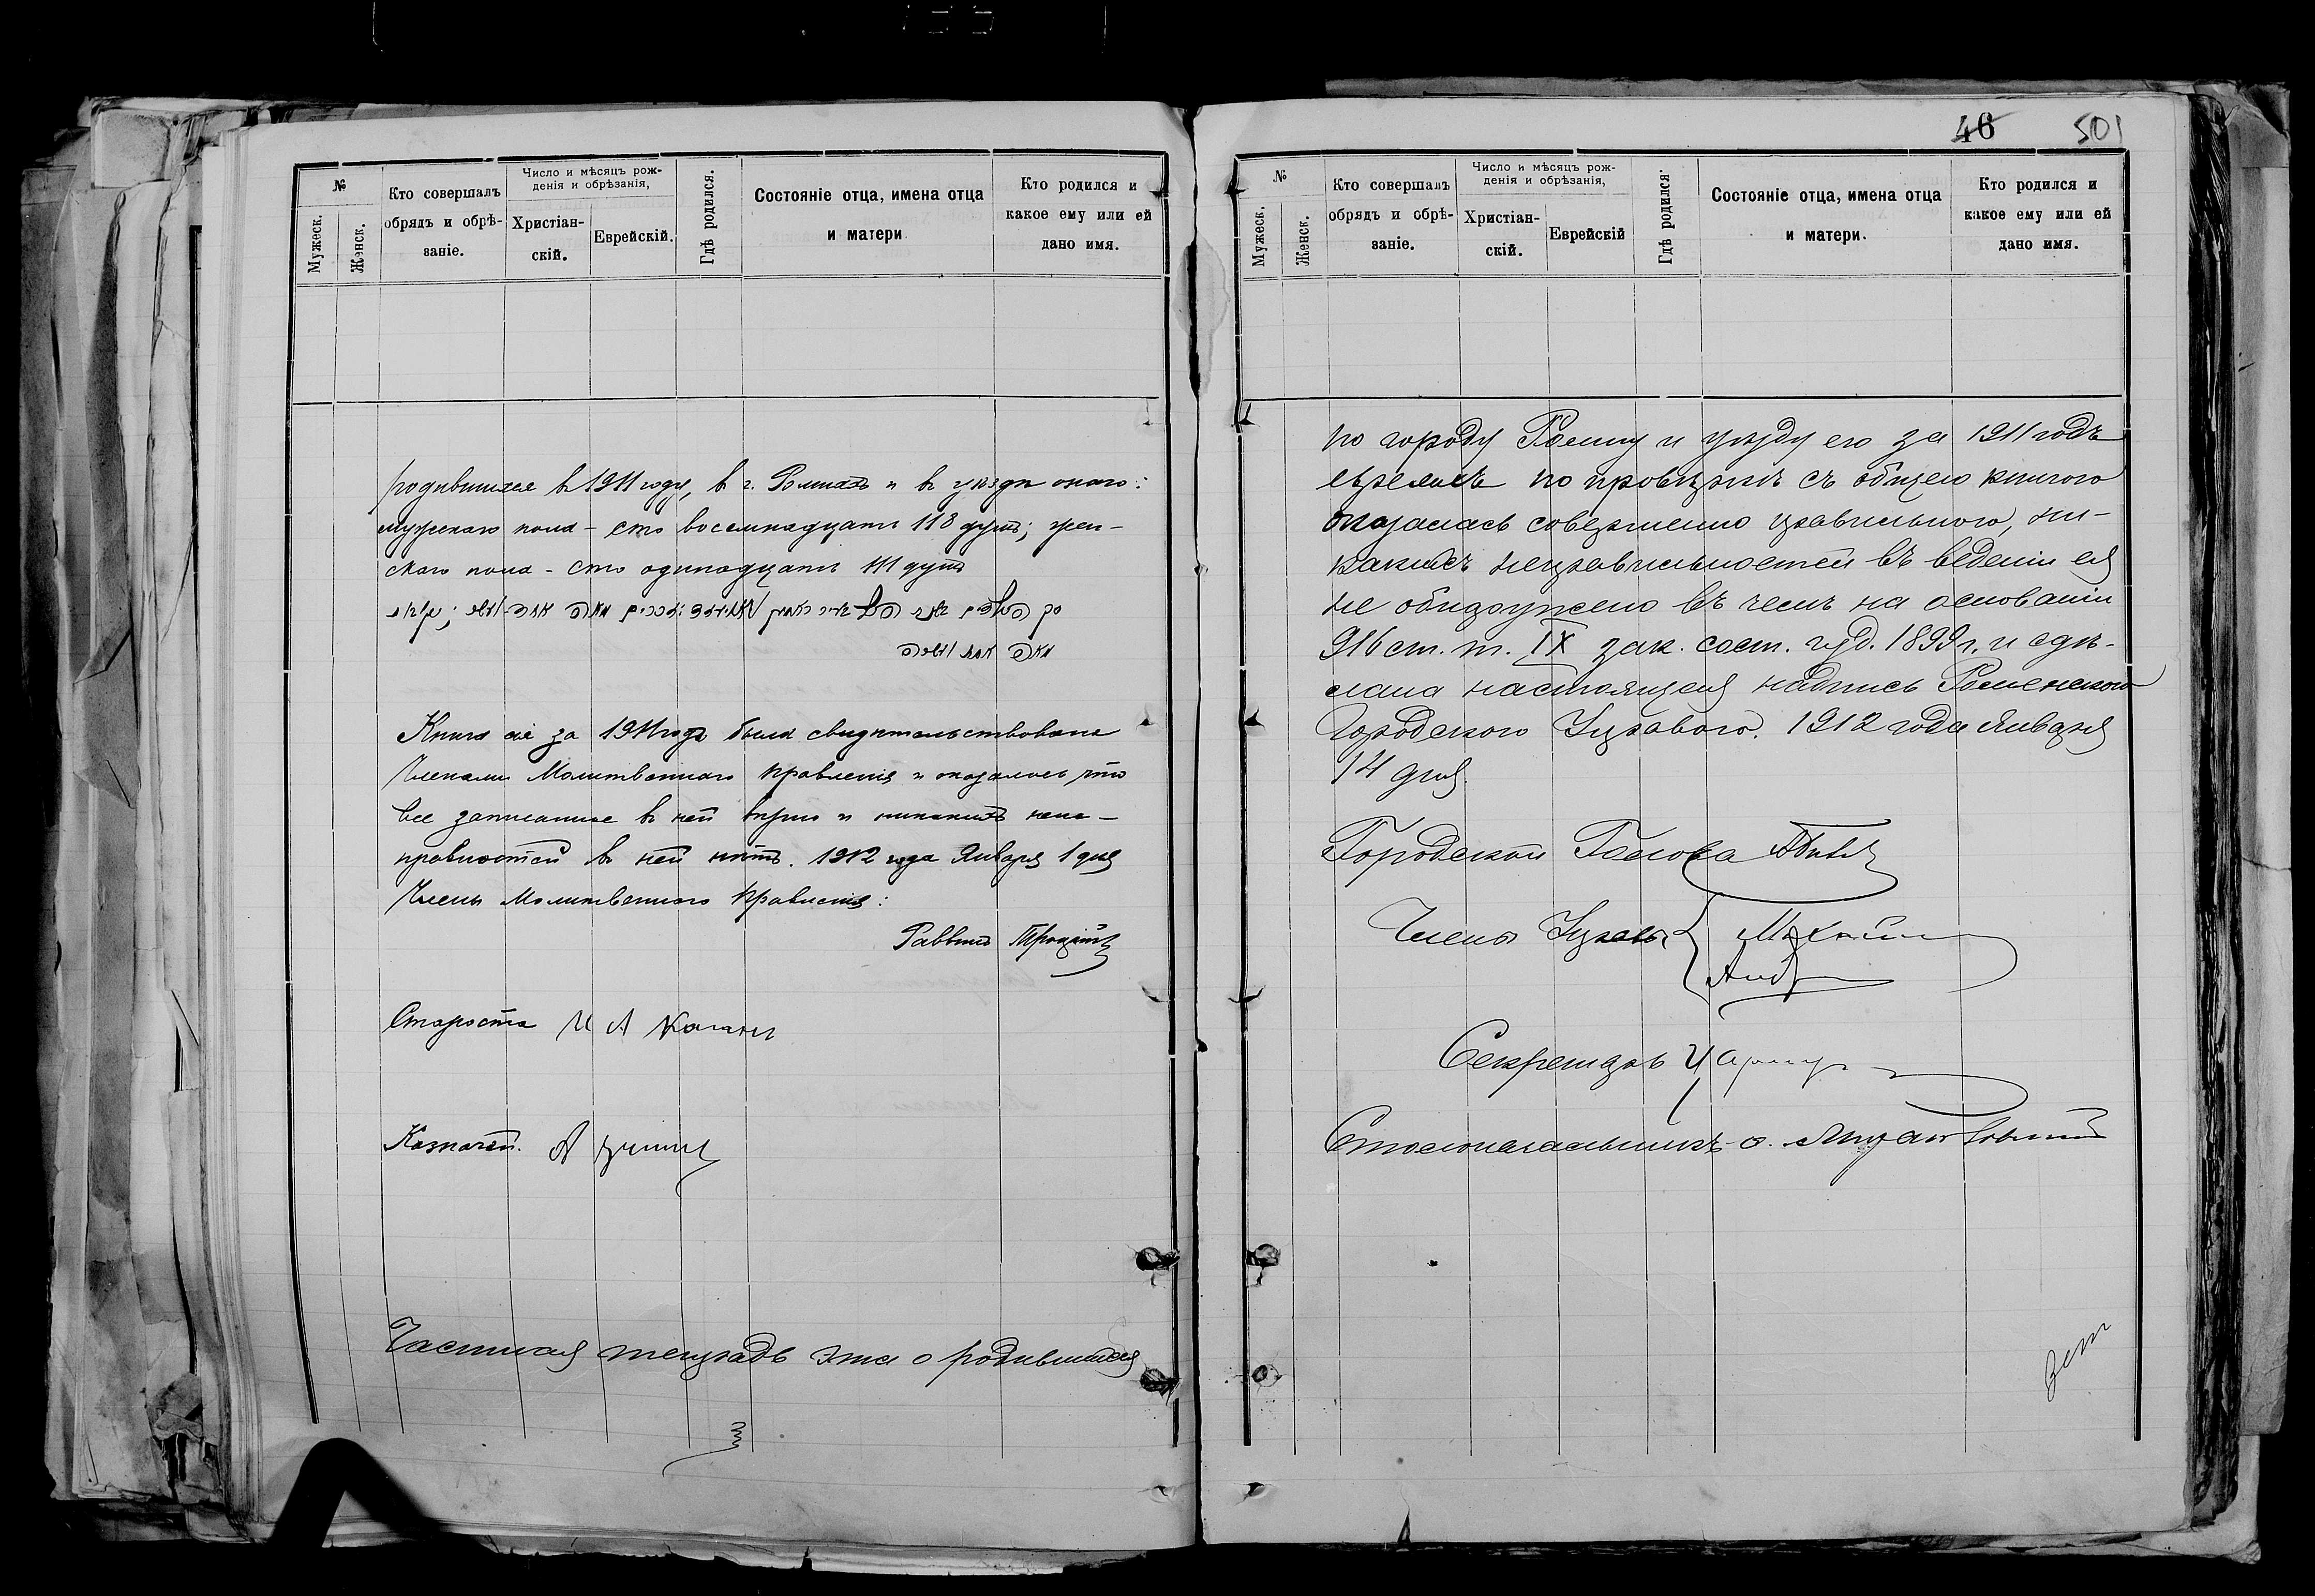 №
Мужеск.
Женск.
Кто совершалъ
обрядъ и обрѣ-
заніе.
Число и мѣсяцъ рож-
денія и обрѣзанія,
Христіан-
скій.
Еврейскій.
Гдѣ родился.
Состояніе отца, имена отца
и матери
Кто родился и
какое ему или ей
дано имя.
родившихся въ 1911 году, в г. Ромнахъ и въ уѣздѣ онаго:
мужскаго пола - сто восемнадцать 118 душъ; жен-
скаго пола - сто одинадцать 111 душъ
Книга сія за 1911 годъ была свидѣтельствована
Членами Молитвеннаго Правленія и оказалось что
все записанное въ ней вѣрно и никакихъ неис-
правностей въ ней нѣтъ. 1912 года Января 1 дня
Члены Молитвеннаго Правленія:
Раввинъ
Староста И А Каганъ
Казначей. А
Частная тетрадь эта о родившихся
46 501
№
Мужеск.
Женск.
Кто совершалъ
обрядъ и обрѣ-
заніе.
Число и мѣсяцъ рож-
денія и обрѣзанія,
Христіан-
скій.
Еврейскій
Гдѣ родился
Состояніе отца, имена отца
и матери.
Кто родился и
какое ему или ей
дано имя.
по городу Ромну и уѣзду его за 1911 годъ
евреяхъ по провѣркѣ съ общею книгою
оказалась совершенно правильною, ни-
какихъ неправильностей въ веденіи ея
не обнаружено въ чемъ на основаніи
916 ст. т. IX зак. сост. изд. 1899 г. и сдѣ-
лана настоящая надпись Роменскою
Городскою Управою. 1912 года Января
14 дня.
Городской Голова
Члены Управы
Секретарь
Столоначальникъ